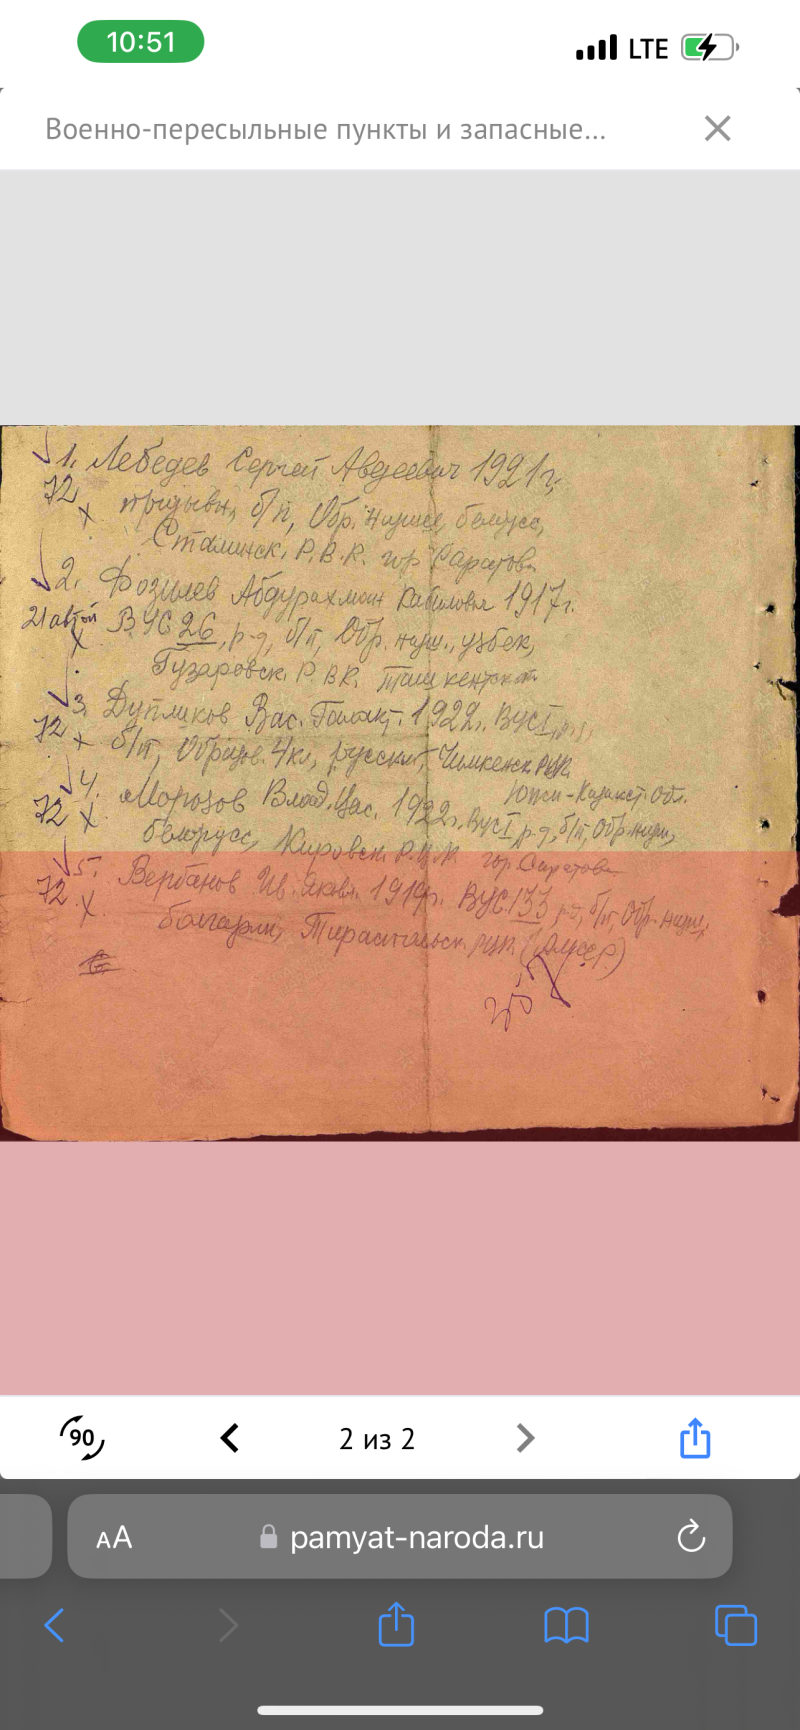 10:51
LTE
Военно-пересыльные пункты и запасные...
1. Лебедев Сергей Авдеевич 1921 г.
72 призывн, б/п, Обр. низшее, белорусс,
х
Сталинск. Р.В.К. гор Саратова
2. Фозилев Абдурахман 1917 г.
21 ВУС 26, р-д, б/п, Обр. низш., узбек,
х
Гузаровск. Р.В.К. Ташкентской
3. Дупликов Вас. 1922 г. ВУС I, р-д,
72 х б/п, Образов. 4 кл, русский, Чимкенск. РВК
Южн-Казахст. Обл.
4. Морозов Влад. 1922 г. ВУС I, р-д, б/п, Обр. низш,
72 х белорусс, Кировск. Р.В.К. гор. Саратова
5. Вербанов Ив. Яковл. 1919 г. ВУС 133 р-д, б/п, Обр. низш,
72 х болгарин, Тираспольск. РВК
90
2 из 2
AA
pamyat-naroda.ru